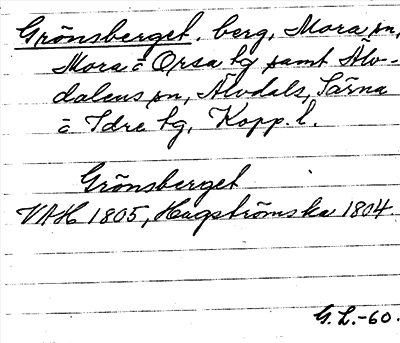 Grönsberget, berg, Mora sn,
Mora o Orsa tg samt Älv-
dalens sn, Älvdals, Särna
o Idre tg, Kopp. l.
Grönsberget
VAH 1805, Hagströmska 1804.
G.L.-60.